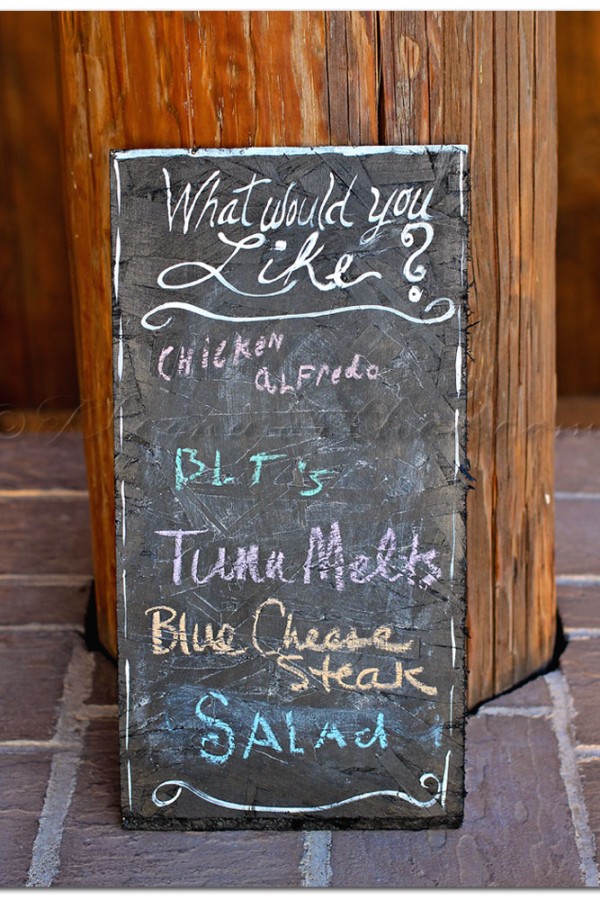 What would you
Like?
CHICKEN
aLFredo
BLT's
Tuna Melts
Blue Cheese
Steak
SALAd